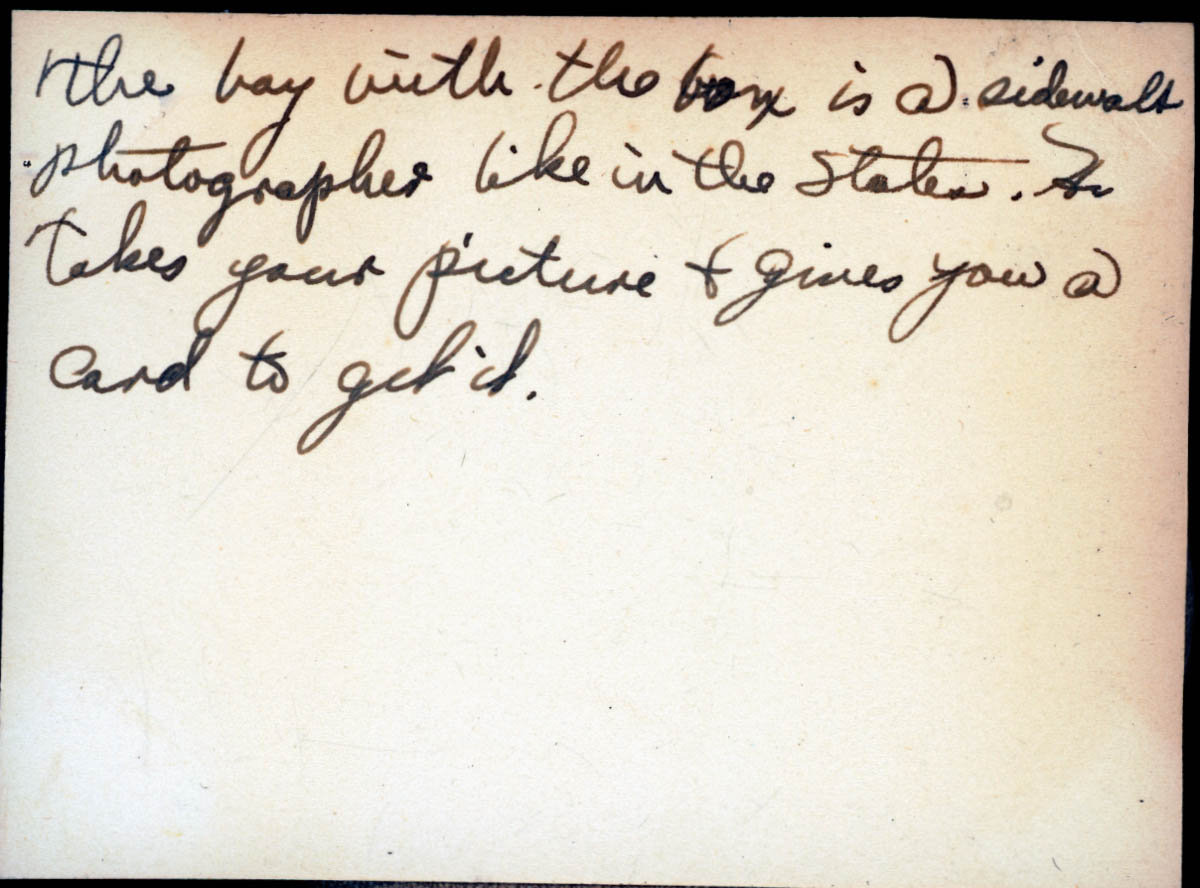 The boy with the box is a sidewalk
photographer like in the States. He
takes your picture & gives you a
card to get it.